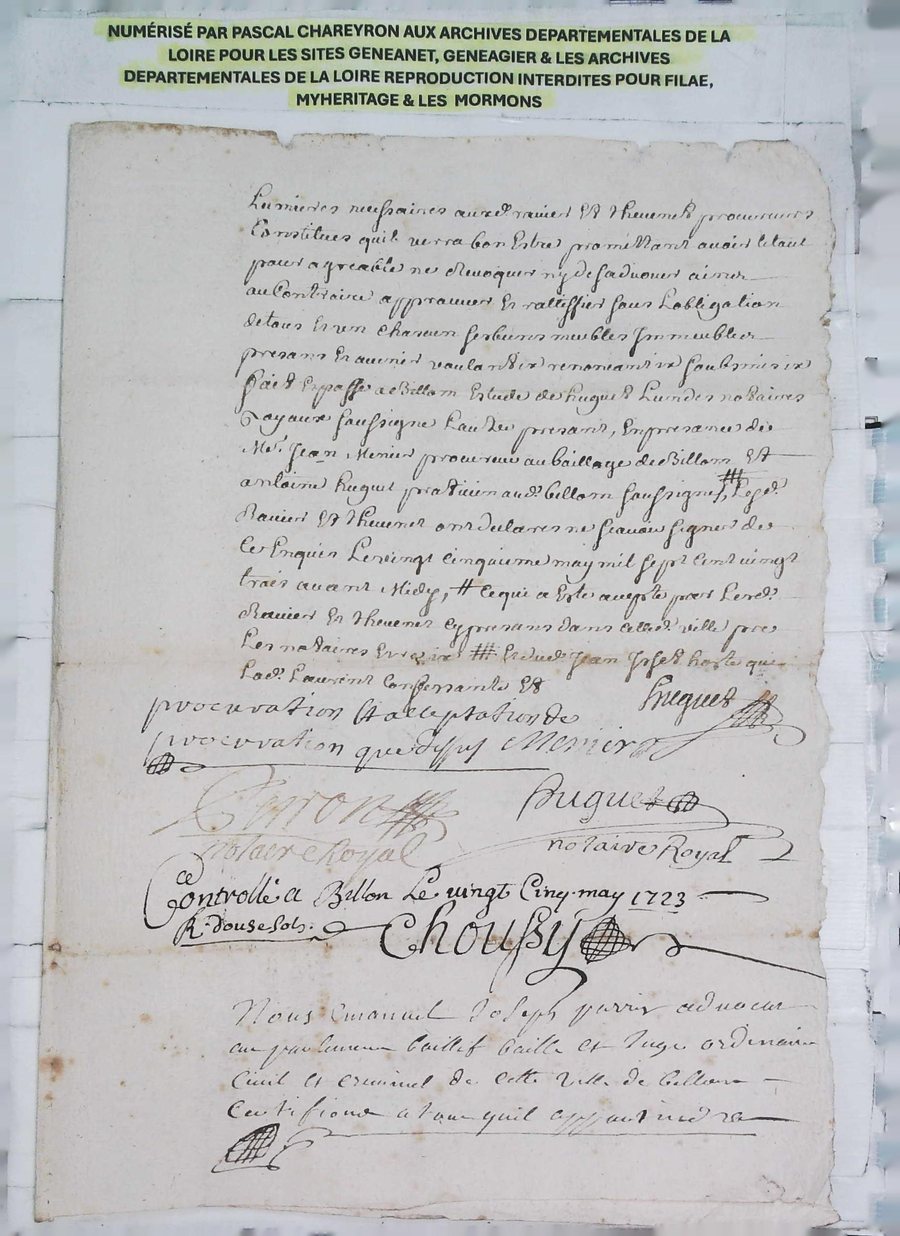 NUMÉRISÉ PAR PASCAL CHAREYRON AUX ARCHIVES DEPARTEMENTALES DE LA
LOIRE POUR LES SITES GENEANET, GENEAGIER & LES ARCHIVES
DEPARTEMENTALES DE LA LOIRE REPRODUCTION INTERDITES POUR FILAE,
MYHERITAGE & LES MORMONS
Lumieres nessaires auxd ravier Et thevenet procureurs
Constitues quil verra bon Estre promettant avoir letout
pour agreable ne Revoquer ny desadvouer ainss
au Contraire approuver Et rattiffier sous Lobligation
detous Et un chacun ses biens meubles Immeubles
presans Et avenir
fait Et passe a Billom Estude de huguet Lun des notaires
Royaux soussigne Lautre presant, En presance de
Me Jean Menier procureur au bailliage de Billom Et
antoine huguet praticien aud billom soussignes, Lesd
Ravier Et thevenet ont declares ne scavoir signer de
Ce Enquis Le vingt cinquieme may mil sept Cent vingt
trois avant Midy, # Ce qui a Este accepte par Lesd
Ravier Et thevenet Cy presans dans ville
Les notaires # Jean
Lad. Laurent Et huguet
procuration Et acceptation de
procuration que dessus Menier
huguet
notaire Royal notaire Royal
Controllé a Billon Le vingt Cinq may 1723
R. douse sols. Choussy
Nous Emanuel Joseph advocat
au parlement baillif et Juge ordinaire
Civil et criminel de cette ville de billom
Certifions a tous quil appartiendra